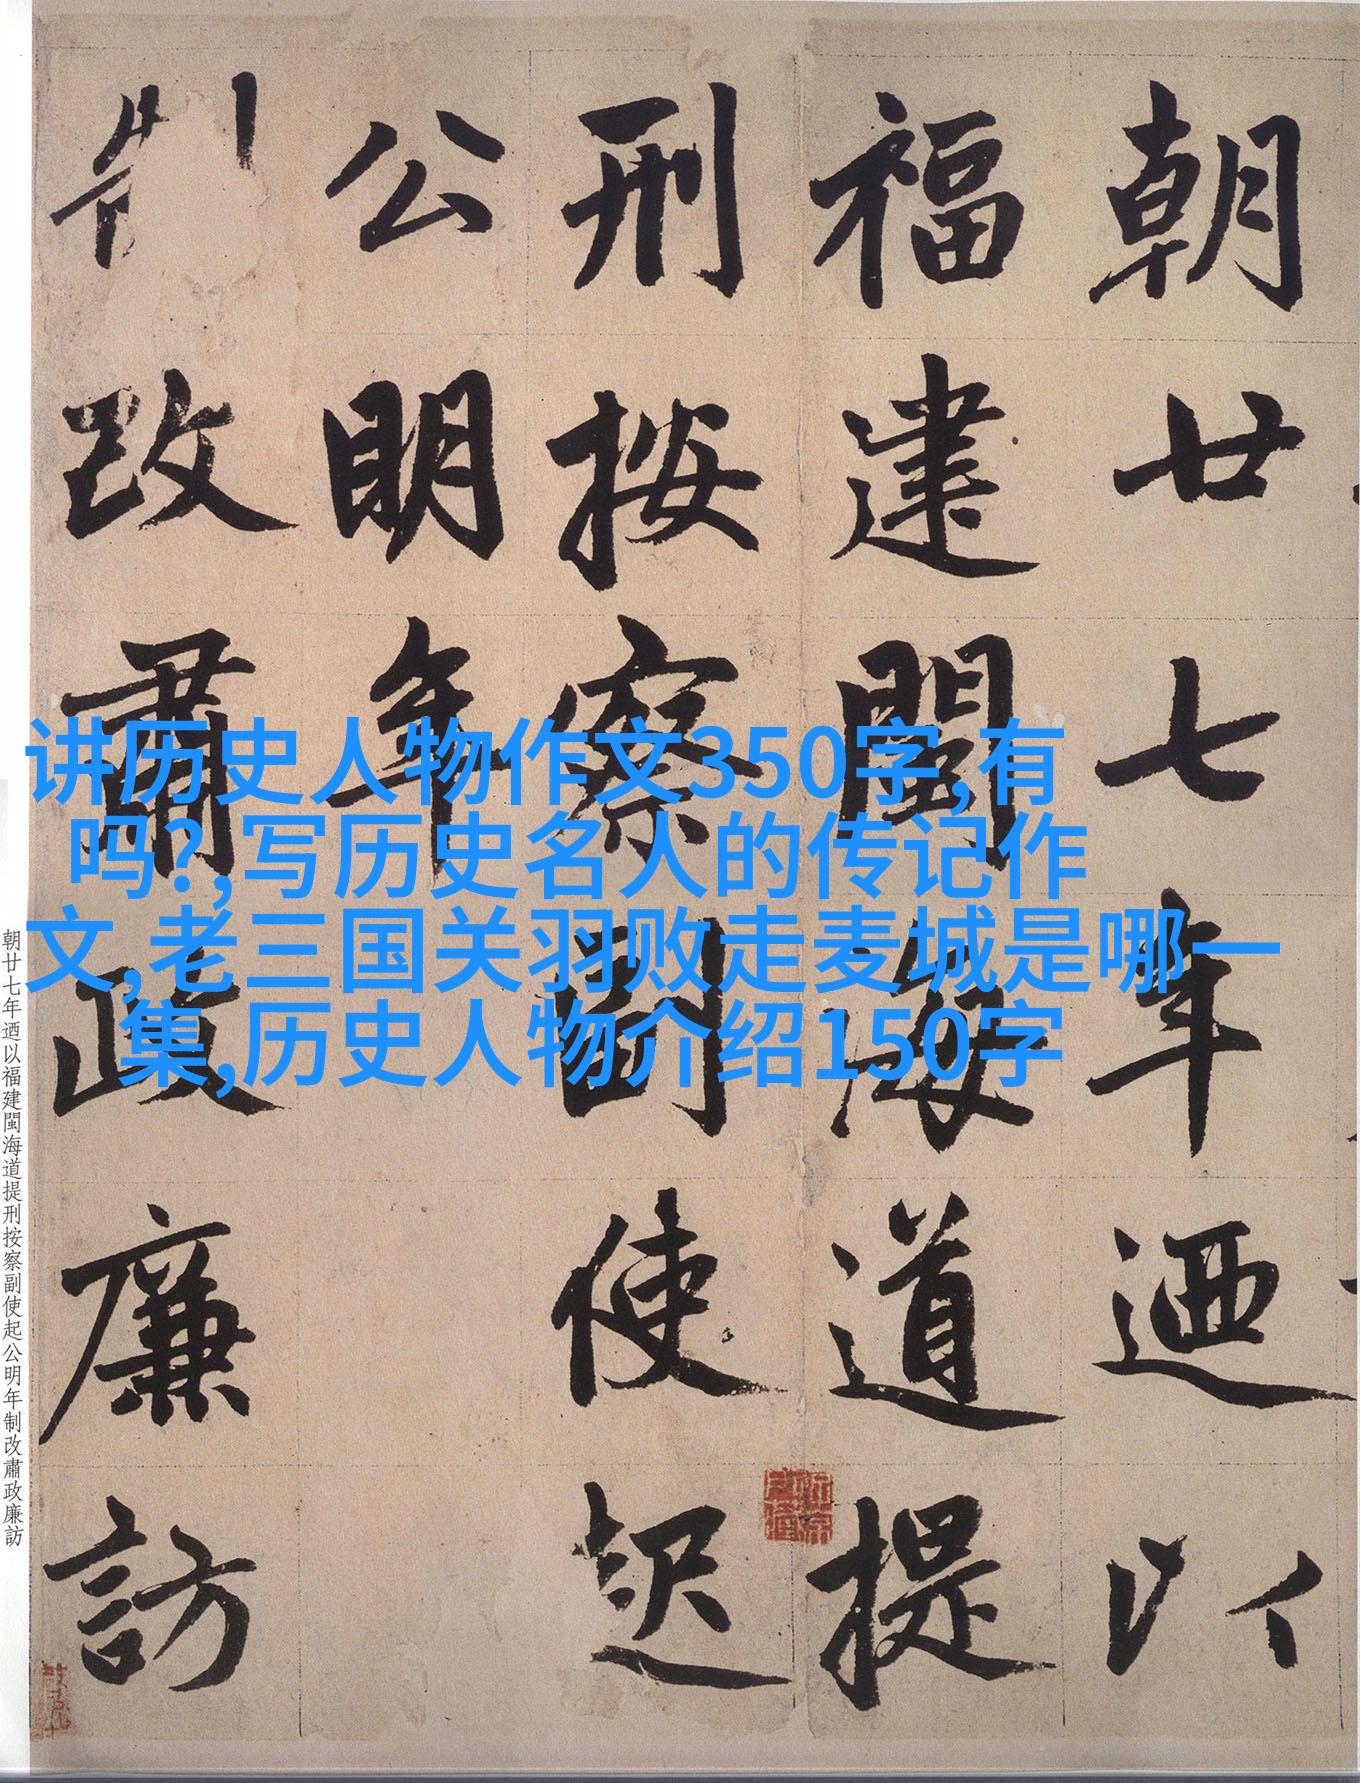 朝廿七年迺以
福建閩海道提
刑按察副使起
公明年
制改肅政廉訪
讲历史人物作文350字,有
吗?,写历史名人的传记作
文,老三国关羽败走麦城是哪一
集,历史人物介绍150字
朝廿七年迺以福建閩海道提刑按察副使起公明年制改肅政廉訪